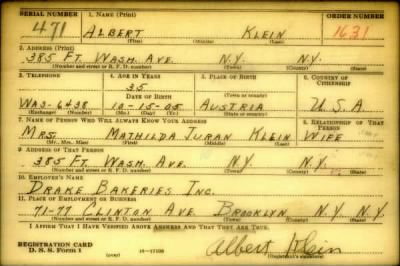 SERIAL NUMBER 1. NAME (Print) ORDER NUMBER
471 ALBERT KLEIN 1631
(First) (Middle) (Last)
2. ADDRESS (Print)
385 FT. WASH. AVE. N.Y. N.Y.
(Number and street or R. F. D. number) (Town) (County) (State)
3. TELEPHONE 4. AGE IN YEARS 5. PLACE OF BIRTH 6. COUNTRY OF CITIZENSHIP
35
DATE OF BIRTH (Town or county)
WA3-6438 10-15-05 AUSTRIA U.S.A
(Exchange) (Number) (Mo.) (Day) (Yr.) (State or country)
7. NAME OF PERSON WHO WILL ALWAYS KNOW YOUR ADDRESS 8. RELATIONSHIP OF THAT PERSON
MRS. MATHILDA JURAN KLEIN WIFE
(Mr., Mrs., Miss) (First) (Middle) (Last)
9. ADDRESS OF THAT PERSON
385 FT. WASH. AVE. N.Y. N.Y.
(Number and street or R. F. D. number) (Town) (County) (State)
10. EMPLOYER'S NAME
DRAKE BAKERIES INC.
11. PLACE OF EMPLOYMENT OR BUSINESS
71-77 CLINTON AVE. BROOKLYN N.Y. N.Y.
(Number and street or R. F. D. number) (Town) (County) (State)
I AFFIRM THAT I HAVE VERIFIED ABOVE ANSWERS AND THAT THEY ARE TRUE.
REGISTRATION CARD
D. S. S. Form 1 (over) Albert Klein
(Registrant's signature)